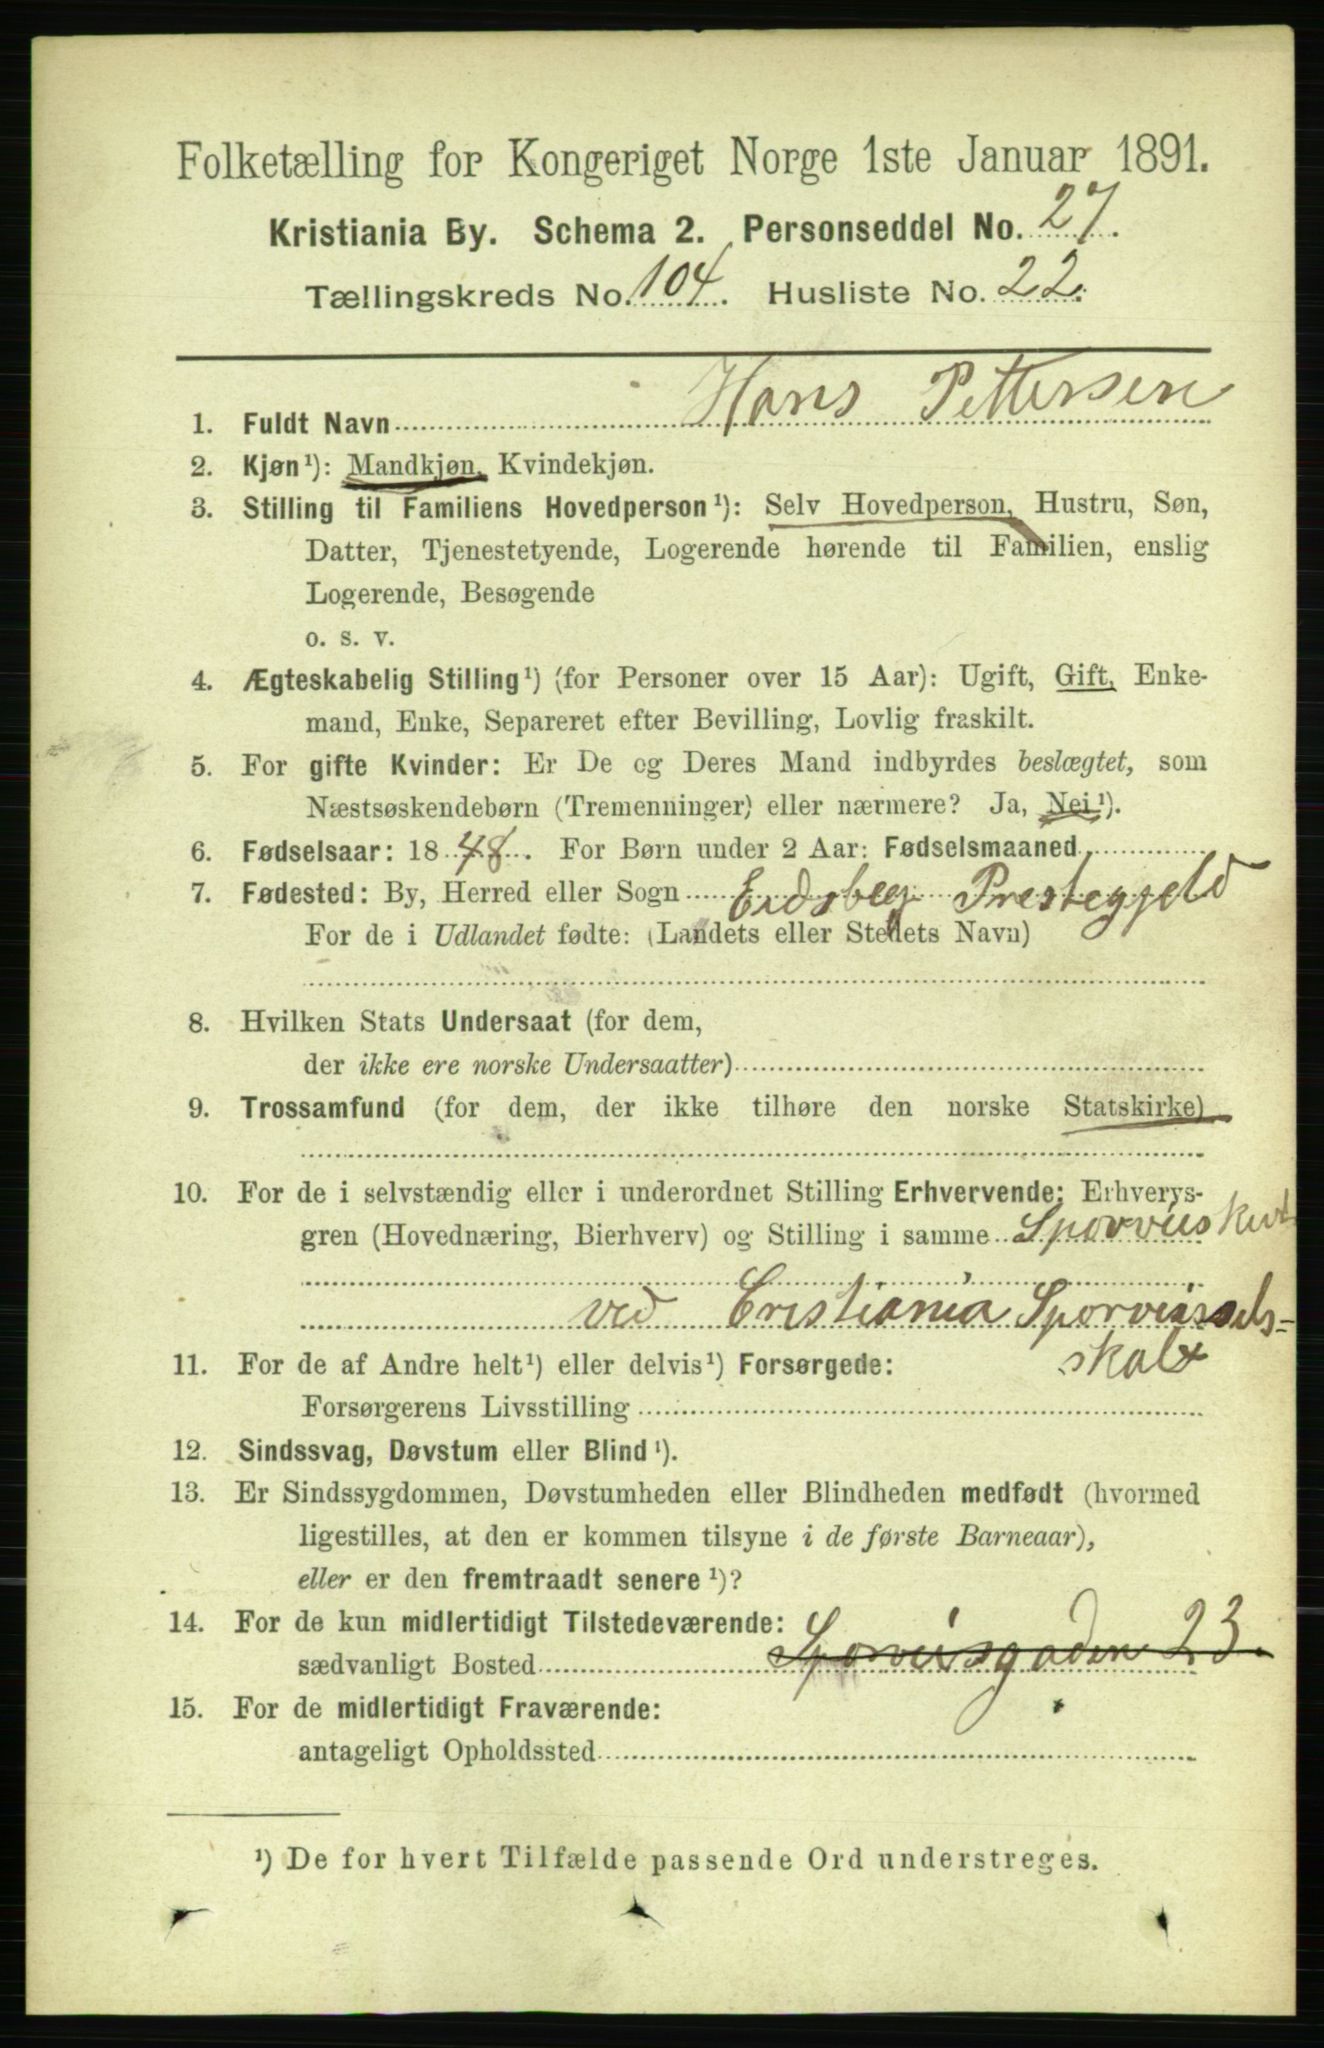 Folketælling for Kongeriget Norge 1ste Januar 1891.
Kristiania By. Schema 2. Personseddel No. 27.
Tællingskreds No. 104. Husliste No. 22.
1. Fuldt Navn Hans Pettersen
2. Kjøn¹): Mandkjøn, Kvindekjøn.
3. Stilling til Familiens Hovedperson¹): Selv Hovedperson, Hustru, Søn,
Datter, Tjenestetyende, Logerende hørende til Familien, enslig
Logerende, Besøgende
o. s. v.
4. Ægteskabelig Stilling¹) (for Personer over 15 Aar): Ugift, Gift, Enke-
mand, Enke, Separeret efter Bevilling, Lovlig fraskilt.
5. For gifte Kvinder: Er De og Deres Mand indbyrdes beslægtet, som
Næstsøskendebørn (Tremenninger) eller nærmere? Ja, Nei¹).
6. Fødselsaar: 1848. For Børn under 2 Aar: Fødselsmaaned
7. Fødested: By, Herred eller Sogn Eidsberg Prestegjeld
For de i Udlandet fødte: (Landets eller Stedets Navn)
8. Hvilken Stats Undersaat (for dem,
der ikke ere norske Undersaatter)
9. Trossamfund (for dem, der ikke tilhøre den norske Statskirke)
10. For de i selvstændig eller i underordnet Stilling Erhvervende: Erhvervs-
gren (Hovednæring, Bierhverv) og Stilling i samme
ved Cristiania Sporveissels-
skab
11. For de af Andre helt¹) eller delvis¹) Forsørgede:
Forsørgerens Livsstilling
12. Sindssvag, Døvstum eller Blind¹).
13. Er Sindssygdommen, Døvstumheden eller Blindheden medfødt (hvormed
ligestilles, at den er kommen tilsyne i de første Barneaar),
eller er den fremtraadt senere¹)?
14. For de kun midlertidigt Tilstedeværende:
sædvanligt Bosted Sporveisgaden 23.
15. For de midlertidigt Fraværende:
antageligt Opholdssted
¹) De for hvert Tilfælde passende Ord understreges.